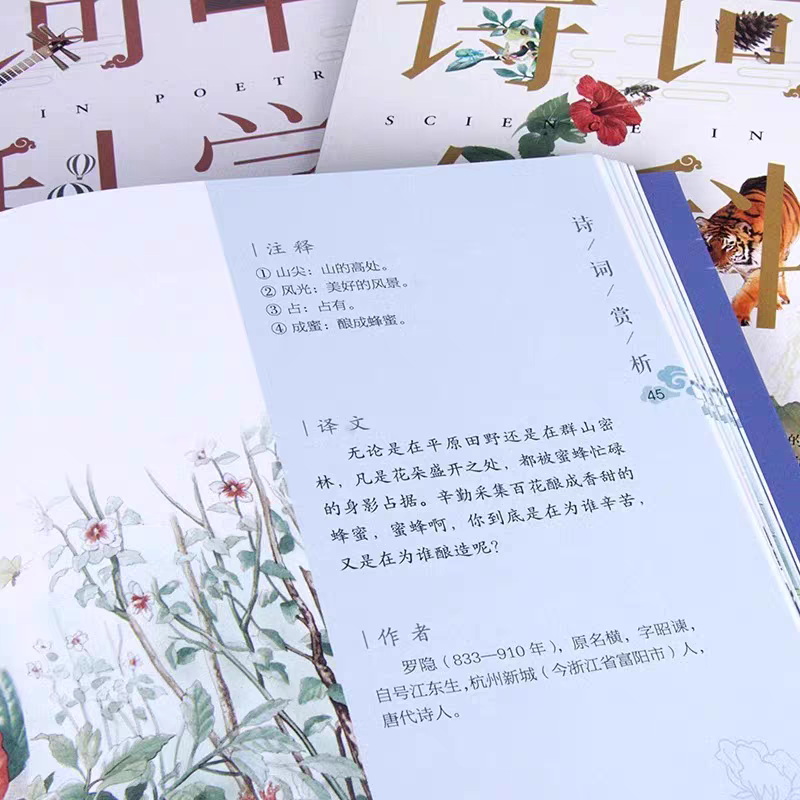 词中
IN POETR
科学
诗词
SCIENCE IN
诗/词/赏/析
45
注释
① 山尖：山的高处。
② 风光：美好的风景。
③ 占：占有。
④ 成蜜：酿成蜂蜜。
译文
无论是在平原田野还是在群山密
林，凡是花朵盛开之处，都被蜜蜂忙碌
的身影占据。辛勤采集百花酿成香甜的
蜂蜜，蜜蜂啊，你到底是在为谁辛苦，
又是在为谁酿造呢？
作者
罗隐（833—910 年），原名横，字昭谏，
自号江东生，杭州新城（今浙江省富阳市）人，
唐代诗人。